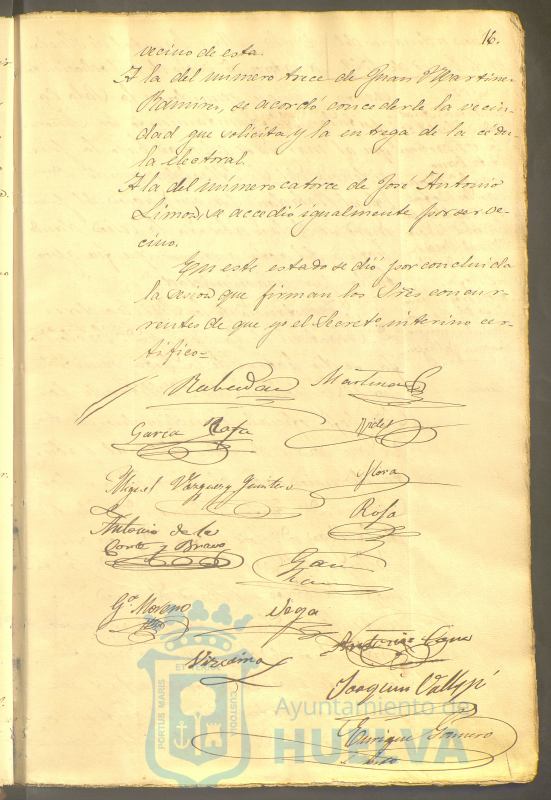 16.
vecino de esta.
A la del número trece de Juan Martinez
Ramirez, se acordó concederle la vecin-
dad que solicita y la entrega de la cédu-
la electoral.
A la del número catorce de José Antonio
Limon, se accedió igualmente por ser ve-
cino.
En este estado se dió por concluida
la sesion que firman los Sres concur-
rentes de que yo el Secretº interino cer-
tifico=
Rabadan Martinez
Garcia Rofa Videl
Miguel Vazquez y Quintero Mora
Antonio de la Rofa
Corte y Bravo
Gª Moreno Vega
Vizcaino
Joaquin
Enrique Romero
PORTUS MARIS ET TERRAE CUSTODIA
Ayuntamiento de
HUELVA